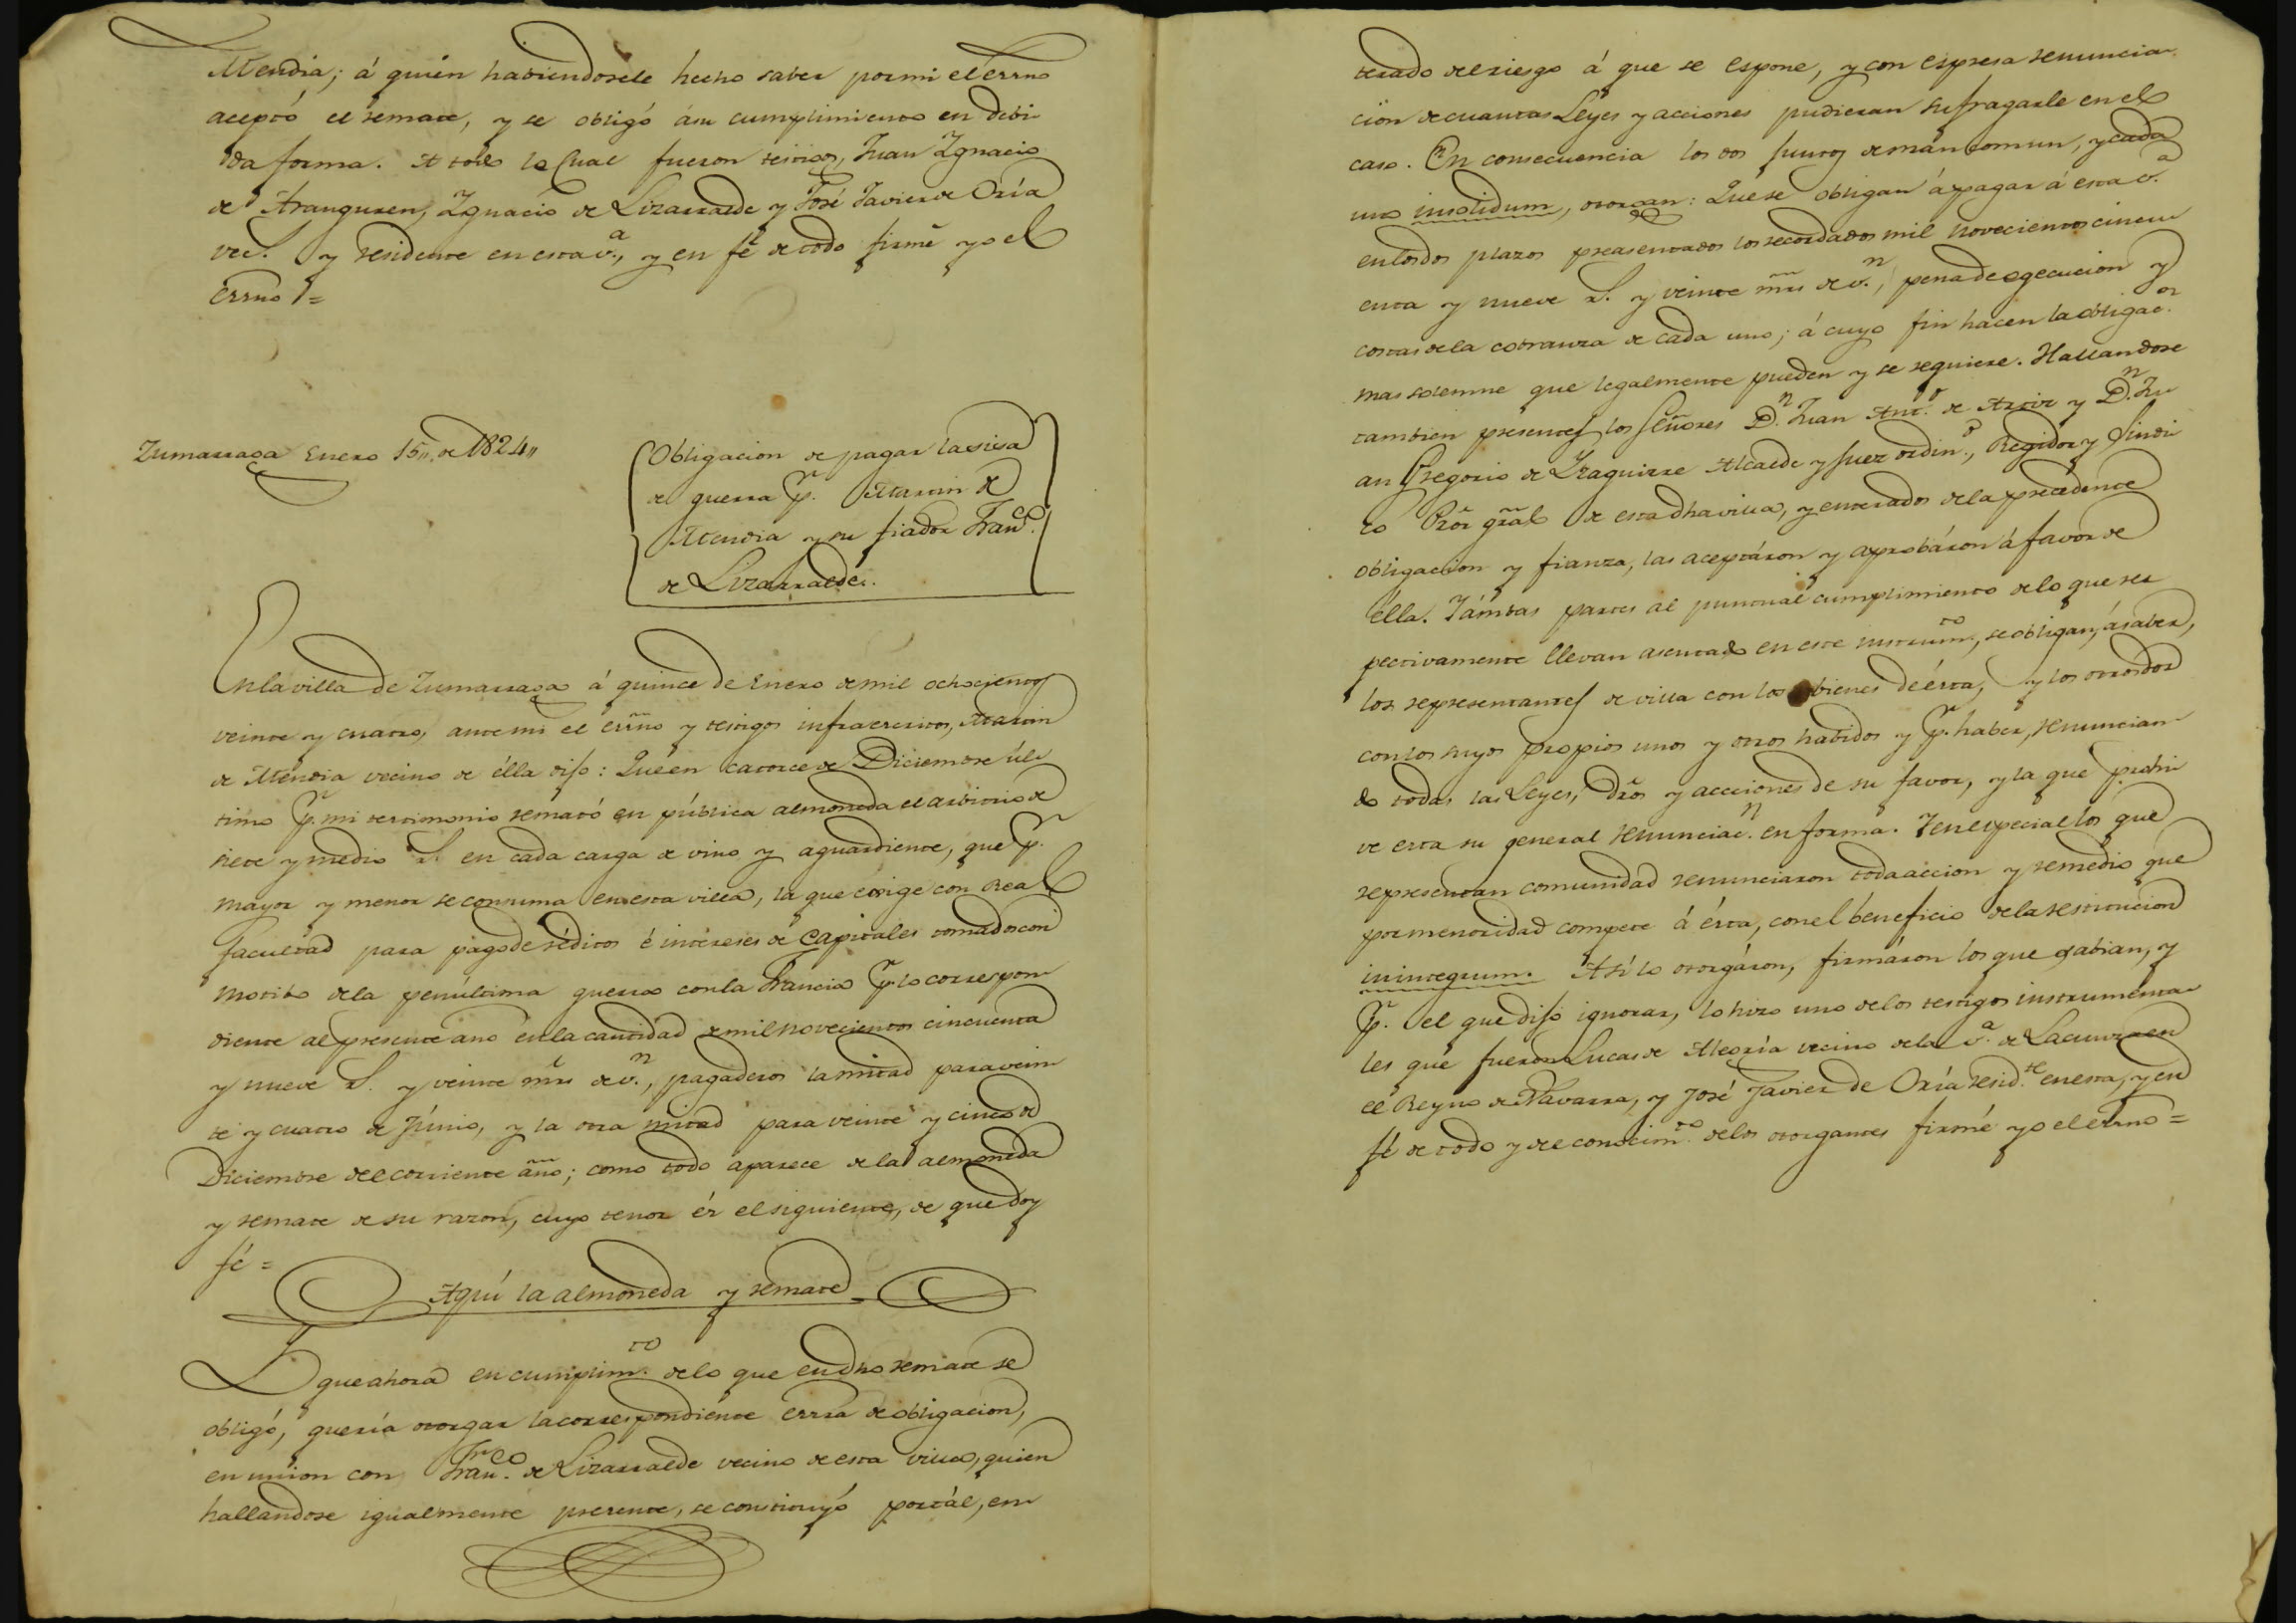 Mendia; á quién habiendosele hecho saber por mi el Errno
aceptó el remate, y se obligó á su cumplimiento en debi
da forma. A todo lo Cual fueron testigos, Juan Ignacio
de Aranguren, Ignacio de Lizarralde y José Javier de Oría
vec.s y residente en esta v.a, y en fé de todo firmé yo el
Errno =
Zumarraga Enero 15,, de 1824,,
Obligacion de pagar la sisa
de guerra p.r Martin de
Mendia y su fiador Fran.co
de Lizarralde.
En la villa de Zumarraga á quince de Enero de mil ochocientos
veinte y cuatro, ante mi el errno y testigos infraescritos, Martin
de Mendia vecino de élla dijo: Qué en catorce de Diciembre úl
timo p.r mi testimonio remató en pública almoneda el arbitrio de
siete y medio r.s en cada carga de vino y aguardiente, que p.r
mayor y menor se consuma en esta villa, la que exige con Real
facultad para pago de réditos é intereses de Capitales tomados con
motibo de la penúltima guerra con la Francia p.r lo correspon
diente al presente año en la cantidad de mil novecientos cincuenta
y nueve r.s y veinte mrs de v.n, pagaderos la mitad para vein
te y cuatro de Júnio, y la otra mitad para veinte y cinco de
Diciembre del corriente año; como todo aparece de la almoneda
y remate de su razon, cuyo tenor és el siguiente, de que doy
fé =
Aquí la almoneda y remate
Y que ahora en cumplim.to de lo que en dho remate se
obligó, quería otorgar la correspondiente Errra de obligacion,
en union con Fran.co de Lizarralde vecino de esta villa, quien
hallandose igualmente presente, se constituyó por tál, en
terado del riesgo á que se espone, y con espresa renuncia
cion de cuantas Leyes y acciones pudieran sufragarle en el
caso. En consecuencia los dos juntos de man comun, y cada
uno insolidum, otorgan: Qué se obligan á pagar á esta v.a
en los dos plazos preasentados los recordados mil novecientos cincu
enta y nueve r.s y veinte mrs de v.n, pena de egecucion y
costas de la cobranza de cada uno; á cuyo fin hacen la obligac.on
mas solemne que legalmente pueden y se requiere. Hallandose
tambien presentes los Señores D.n Juan Ant.o de Aztir y D.n Ju
an Gregorio de Yraguirre Alcalde y Juez ordin.o, Regidor y Sindi
co Pror gral de esta dha villa, y enterados de la precedente
obligacion y fianza, las aceptáron y aprobáron á favor de
élla. Y ámbas partes al puntual cumplimiento de lo que res
pectivamente llevan asentado en este instrum.to, se obligan, á saber,
los representantes de villa con los bienes de ésta, y los otros dos
con los suyos propios unos y otros habidos y p.r haber, renuncian
do todas las Leyes, dros y acciones de su favor, y la que prohi
ve esta su general renunciac.n en forma. Y en especial los que
representan comunidad renunciaron toda accion y remedio que
por menoridad compete á ésta, con el beneficio de la restitucion
inintegrum. Así lo otorgáron, firmáron los que sabian, y
p.r el que dijo ignorar, lo hizo uno de los testigos instrumenta
les que fueron Lucas de Alegría vecino de la v.a de Lacunza en
el Reyno de Navarra, y José Javier de Oría resid.te en esta, y en
fé de todo y de el conocim.to de los otorgantes firmé yo el errno =